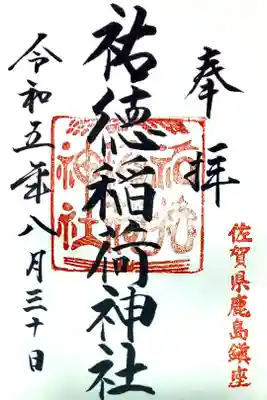 奉拝
佐賀県鹿島鎮座
祐徳稲荷神社
令和五年八月三十日